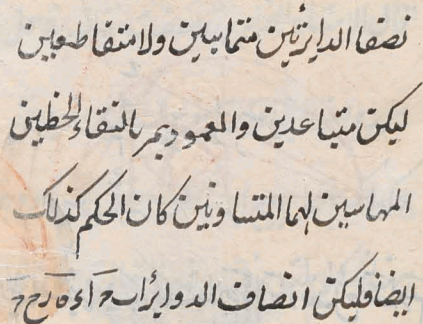 نصفا الدايرتين متماسين ولا متقاطعين
ليكن متباعدين والعمود يمر بالتقاء الخطين
المماسين لهما المتساويين كان الحكم كذلك
ايضا فليكن انصاف الدواير اب ح اه ه رح